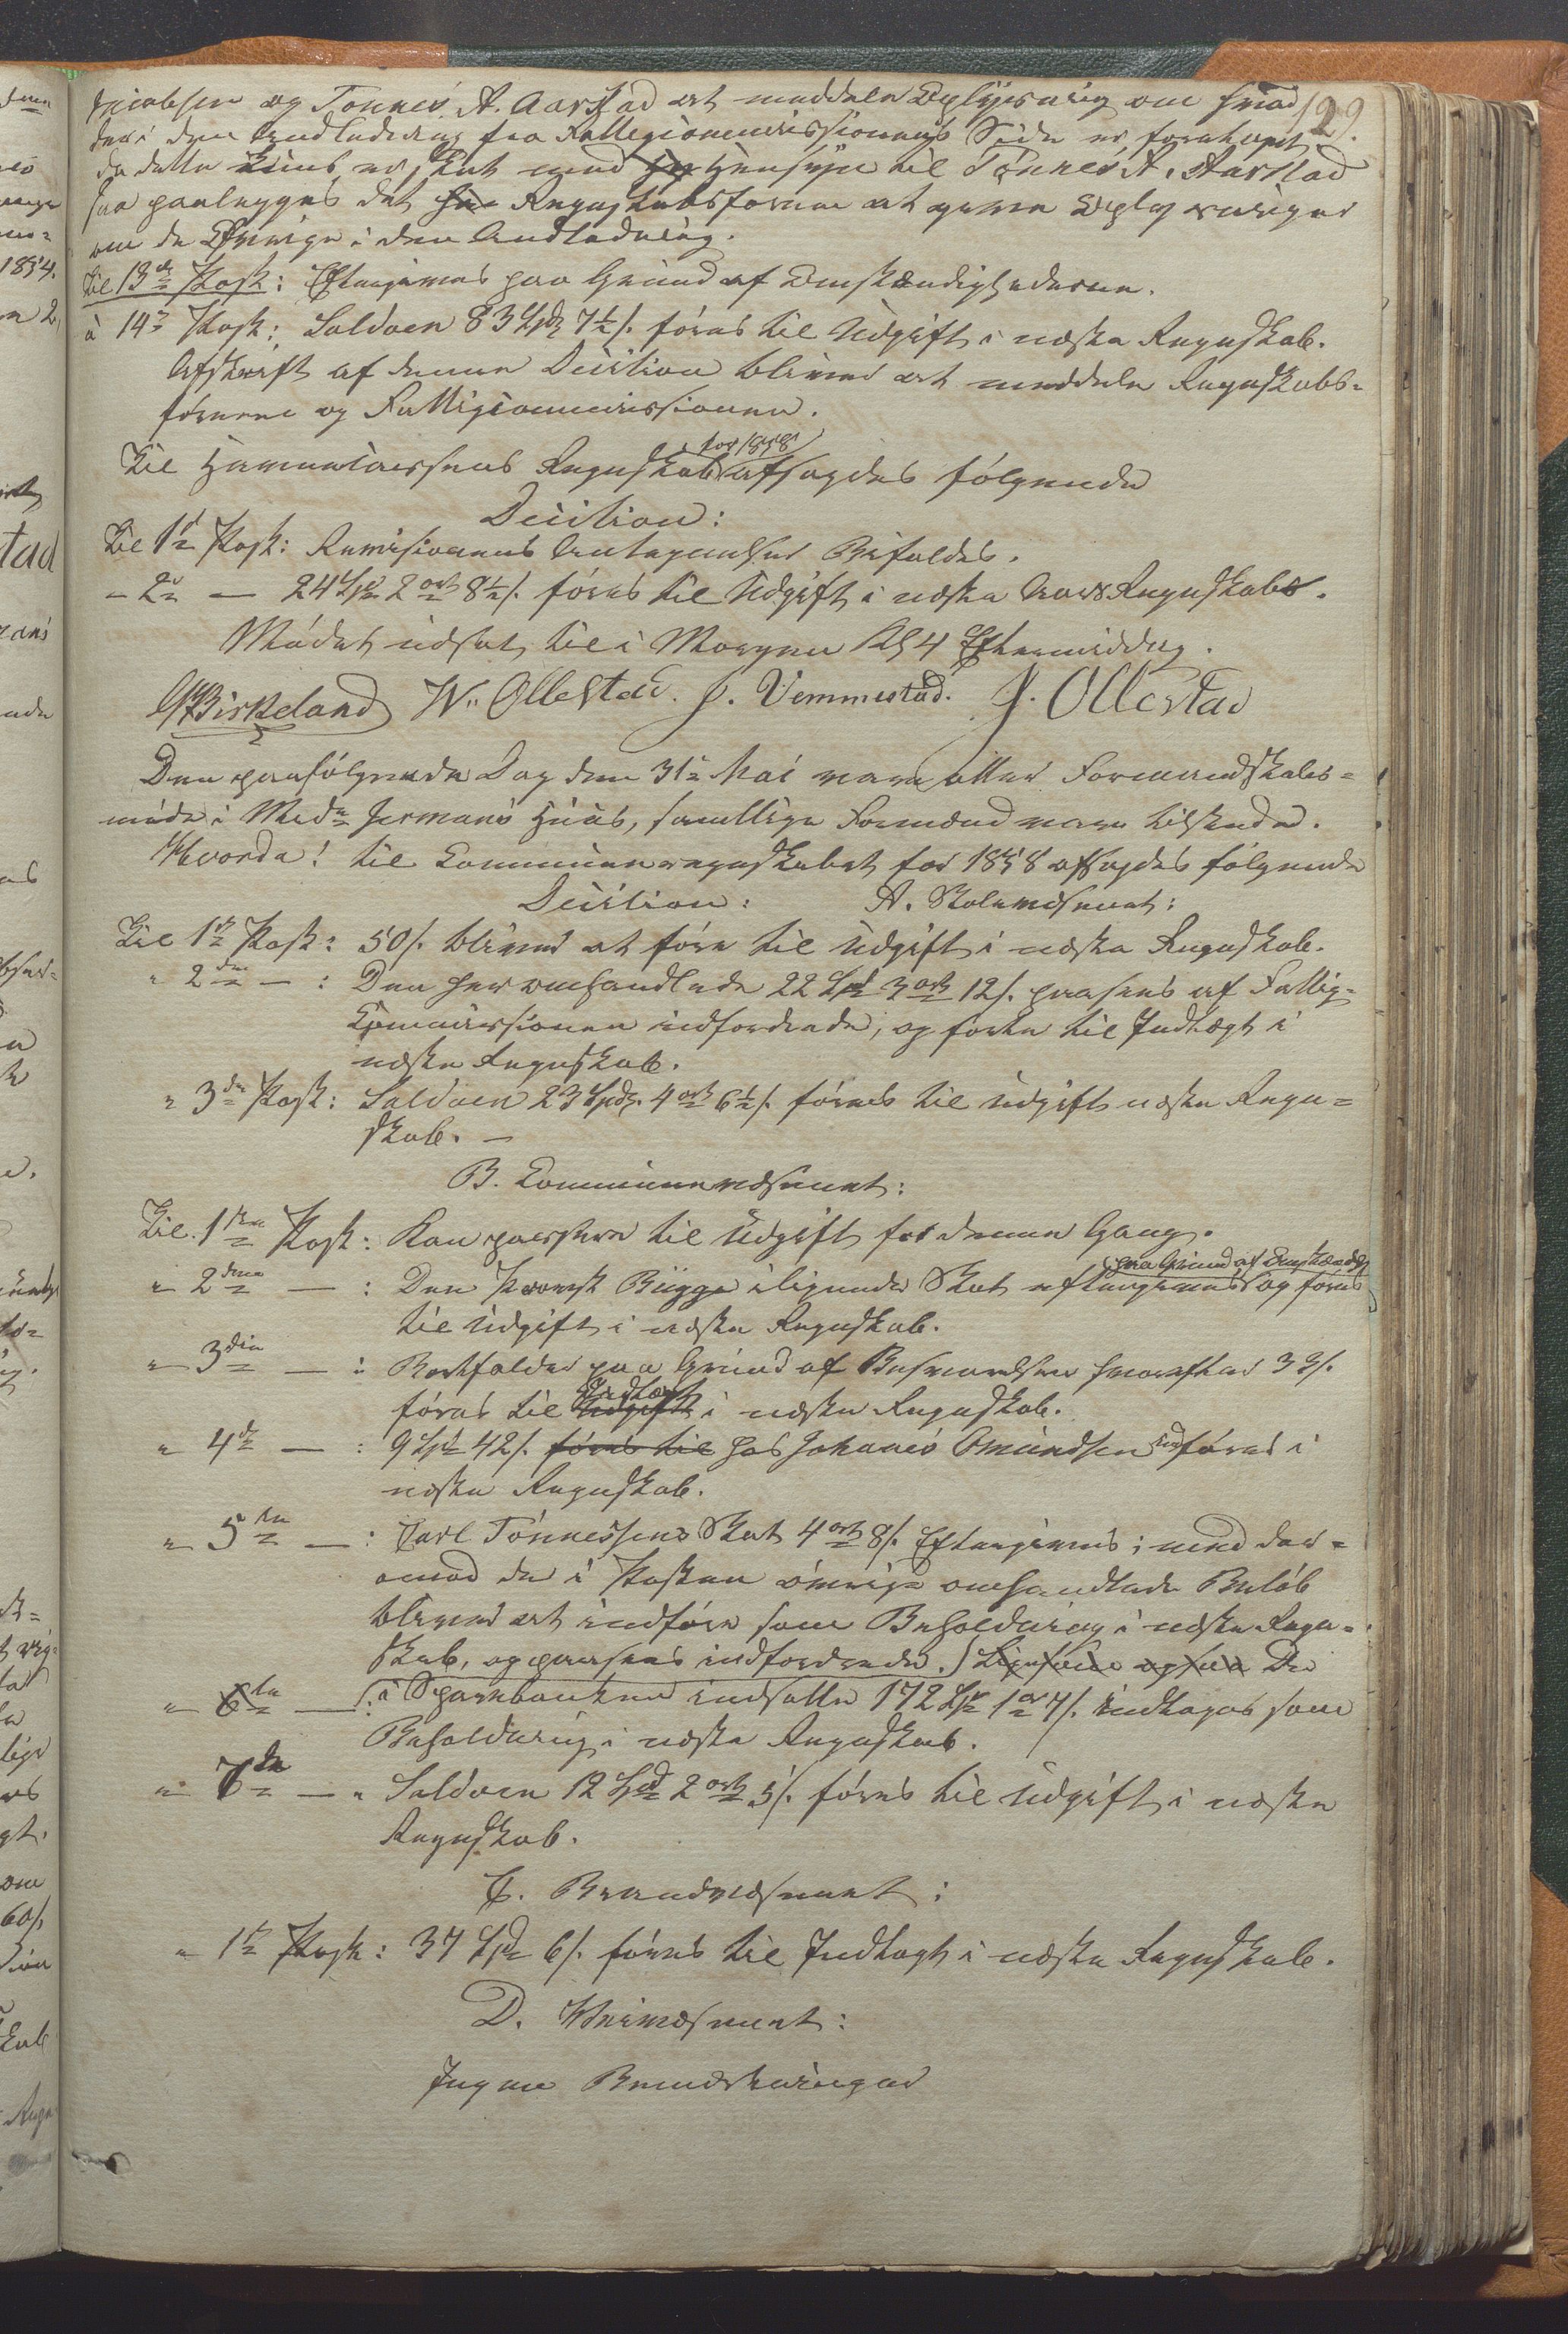 129.
Jacobsen og Tønnes A. Aarstad at meddele Oplysning om hvad
der i den Anledning fra Fattigcommissionens Side er foretaget,
da dette kuns er skeet med Hensyn til Tønnes A. Aarstad
saa paalegges det Regnskabsføreren at give Oplysninger
om de Øvrige i den Anledning.
Til 13de Post: Eftergives paa Grund af Omstændighederne.
" 14de Post: Saldoen 83 Spd 7½ s. føres til Udgift i næste Regnskab.
Afskrift af denne Decition bliver at meddele Regnskabs-
føreren og Fattigcommissionen.
Til Regnskab for 1858 afsagdes følgende
Decition:
Til 1ste Post: Revisionens Antegnelser Bifaldes.
" 2den — 24 Spd 2 ort 8½ s. føres til Udgift i næste Aars Regnskab.
Mødet udsat til i Morgen Kl 4 Eftermiddag.
Birkeland W. Ollestad. J. Vemmestad. J. Ollestad
Den paafølgende Dag den 31te Mai var atter Formandskabs-
møde i Mad. Jermans Huus, samtlige Formænd vare tilstede.
Hvorda! til Communeregnskabet for 1858 afsagdes følgende
Decition: A. Skolevæsenet:
Til 1ste Post: 50 s. bliver at føre til Udgift i næste Regnskab.
" 2den — : Den her omhandlede 22 Spd 3 ort 12 s. paasees af Fattig-
Commissionen indfordrede, og føres til Indtægt i
næste Regnskab.
" 3die Post: Saldoen 23 Spd. 4 ort 6½ s. føres til Udgift næste Regn-
skab. —
B. Communevæsenet:
Til 1ste Post: Kan passere til Udgift for denne Gang.
" 2den — : Den Provst Bugge ilignede Skat eftergives paa Grund af Omstændigh. og føres
til Udgift i næste Regnskab.
" 3die — : Bortfalder paa Grund af Besvarelsen hvorefter 32 s.
føres til Udgift Indtægt i næste Regnskab.
" 4de — : 9 Spd 42 s. føres til hos Johanes Omundsen indføres i
næste Regnskab.
" 5te — : Carl Tønnessens Skat 4 ort 8 s. Eftergives; med der-
imod de i Posten øvrige omhandlede Beløb
bliver at indføre som Beholdning i næste Regn-
skab, og paasees indfordrede. Ligesom ogsaa De
" 6te — : i Sparebanken indsatte 172 Spd 1 ort 7 s. indtages som
Beholdning i næste Regnskab.
" 6te — " Saldoen 12 Spd 2 ort 5 s. føres til Udgift i næste
Regnskab.
C. Brandvæsenet:
" 1ste Post: 37 Spd 6 s. føres til Indtægt i næste Regnskab.
D. Veivæsenet:
Ingen Bemærkninger